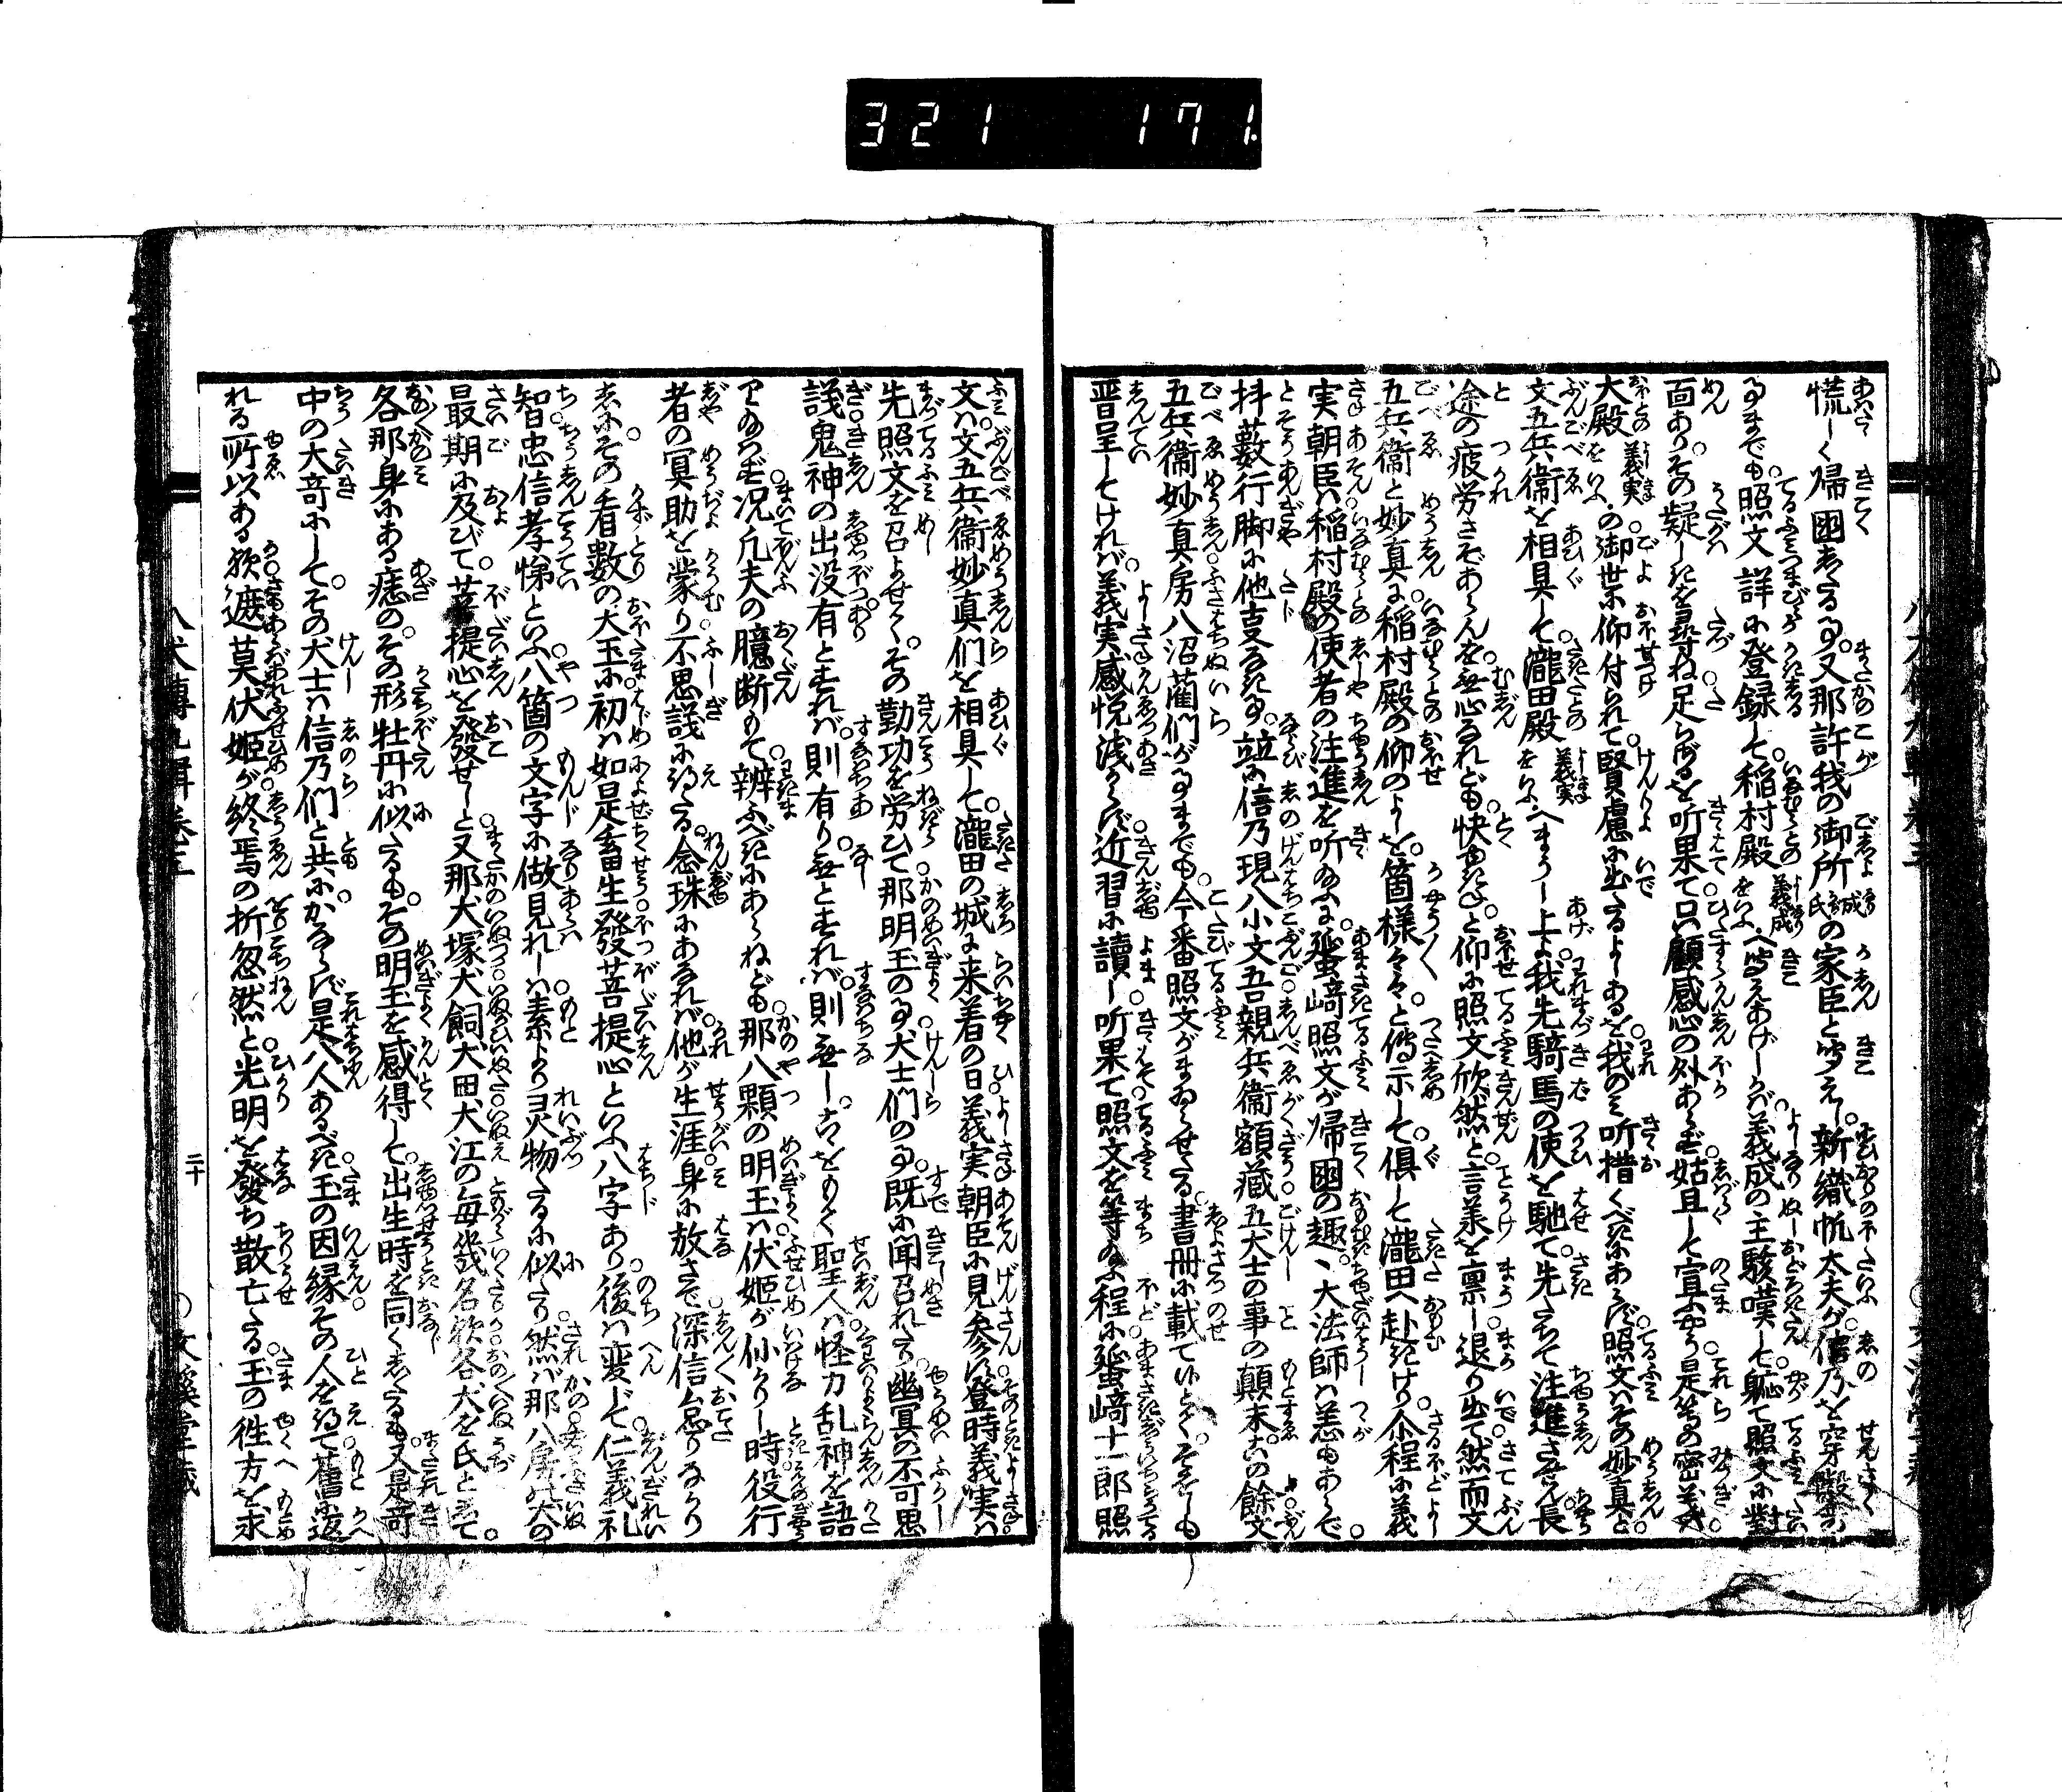 321 171
慌しく帰国したる事。又那許我の御所成氏の家臣と聞えし。新織帆太夫が。信乃を穿鑿の
事までも。照文詳に登録して。稲村殿義成をいふへ聞えあげしかば。義成の主駭嘆じて。軈て照文に対
面あり。その疑しきを尋ね足らざるを听果て。只顧感心の外あらず。姑且して宣ふやう。是等の密議は
大殿義実をいふの御世に仰付られて。賢慮に出たるよしあるを。我のみ听措くべきにあらず。照文はその妙真と
文五兵衛を相具して。瀧田殿義実をいふへまうし上よ。我先騎馬の使を馳て。先たちて注進させん。長
途の疲労さぞあらんを。無心なれども快ゆきね。と仰に照文欣然と。言承を稟し退り出て。然而文
五兵衛と妙真に。稲村殿の仰のよしを。箇様々々と傳示して。倶して瀧田へ赴きけり。尒程に義
実朝臣は。稲村殿の使者の注進を听給ふに。蜑崎照文が帰国の趣。丶大法師は恙もあらで。
抖擻行脚に他事なき事。竝に信乃現八小文吾親兵衛額蔵五犬士の事の顛末。この餘文
五兵衛妙真房八沼藺們が事までも。今番照文がまゐらせたる。書冊に載てはべり。とくそをしも
晋呈してければ。義実感悦浅からず。近習に讀し听果て。照文を等給ふ程に。蜑崎十一郎照
文は。文五兵衛妙真們を相具して。瀧田の城に来着の日。義実朝臣に見参す。登時義実は
先照文を召よせて。その勤功を労ひて。那明玉の事犬士們の事。既に聞召れたり。幽冥の不可思
議。鬼神の出没。有とすれば。則有り。無とすれば。則無し。こゝをもて聖人は。怪力乱神を語
り給はず。况凡夫の臆断もて。辨ふべきにあらねども。那八顆の明玉は。伏姫が仏かりし時。役行
者の冥助を蒙り。不思議に得たる。念珠にあなれば。他が生涯身に放さで。深信怠りなかり
しに。その看数の大玉に。初は如是畜生發菩提心といふ八字あり。後は変じて。仁義礼
智。忠信孝悌といふ。八箇の文字に做見れしは。素より霊物たるに似たり。然ば那八房の犬の
最期に及びて。菩提心を發せしと。又那犬塚犬飼犬田犬江の毎。幾名欤各犬を氏として。
各那身にある痣の。その形牡丹に似たるも。その明玉を感得して。出生時を同くしたるも。又是奇
中の大奇にして。その犬士は信乃們と共に。かならず是八人あるべき。玉の因縁。その人を得て。舊に返
れる所以ある欤。遮莫伏姫が。終焉の折忽然と。光明を發ち散亡たる。玉の徃方を求
八犬傳九輯巻三
二十
文溪堂藏